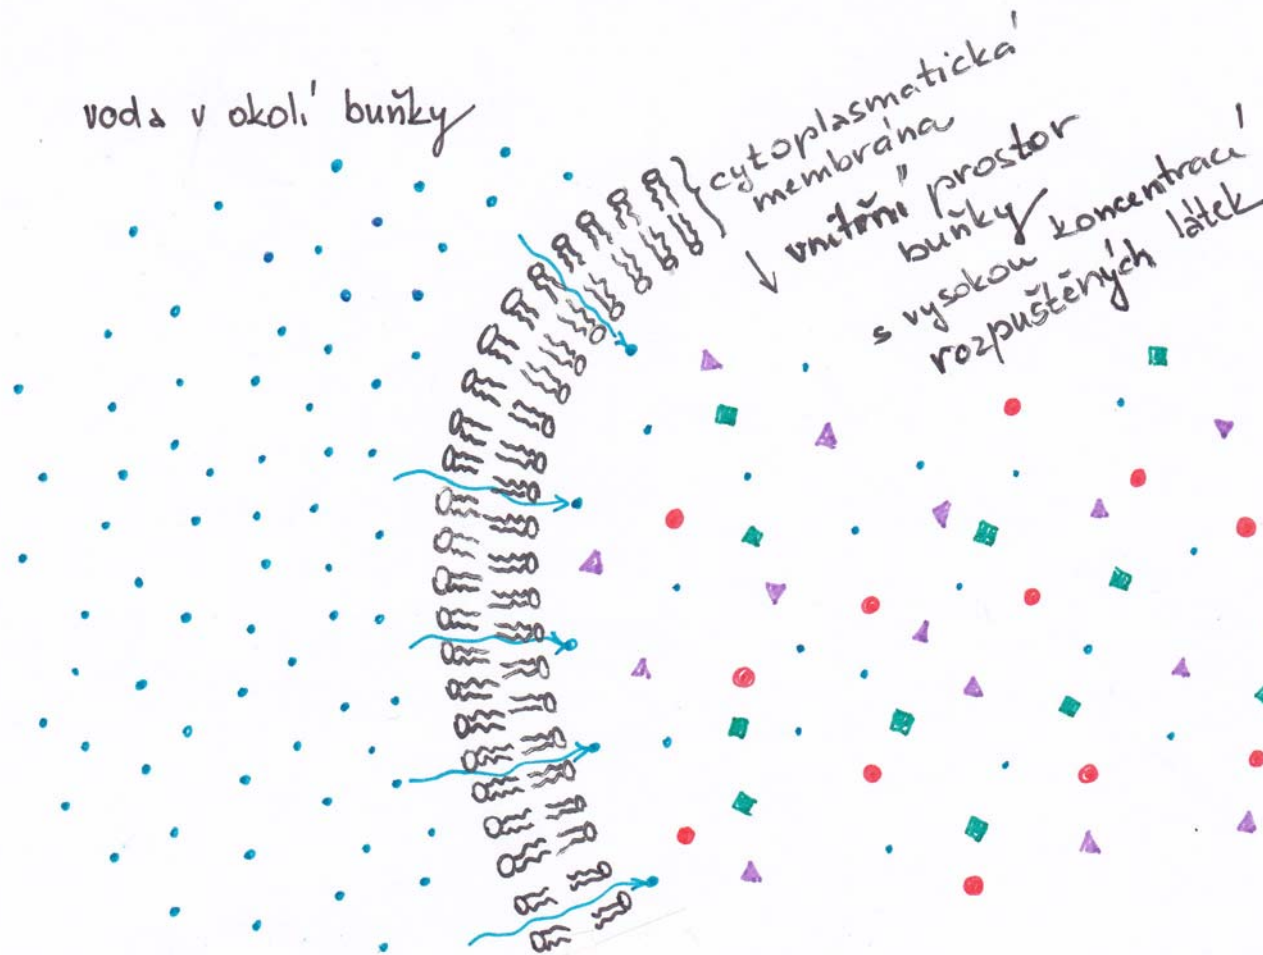 voda v okolí buňky
cytoplasmatická
membrána
vnitřní prostor
buňky
s vysokou koncentrací
rozpuštěných látek